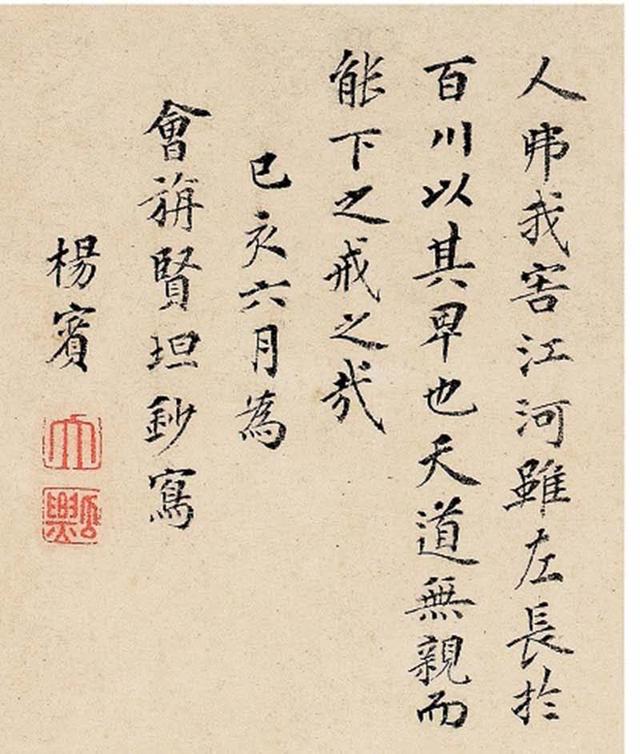 人我害江河雖左長於
百川以其卑也天道無親而
能下之戒之哉
己亥六月為
會旃賢坦鈔寫
楊賓
大
瓢